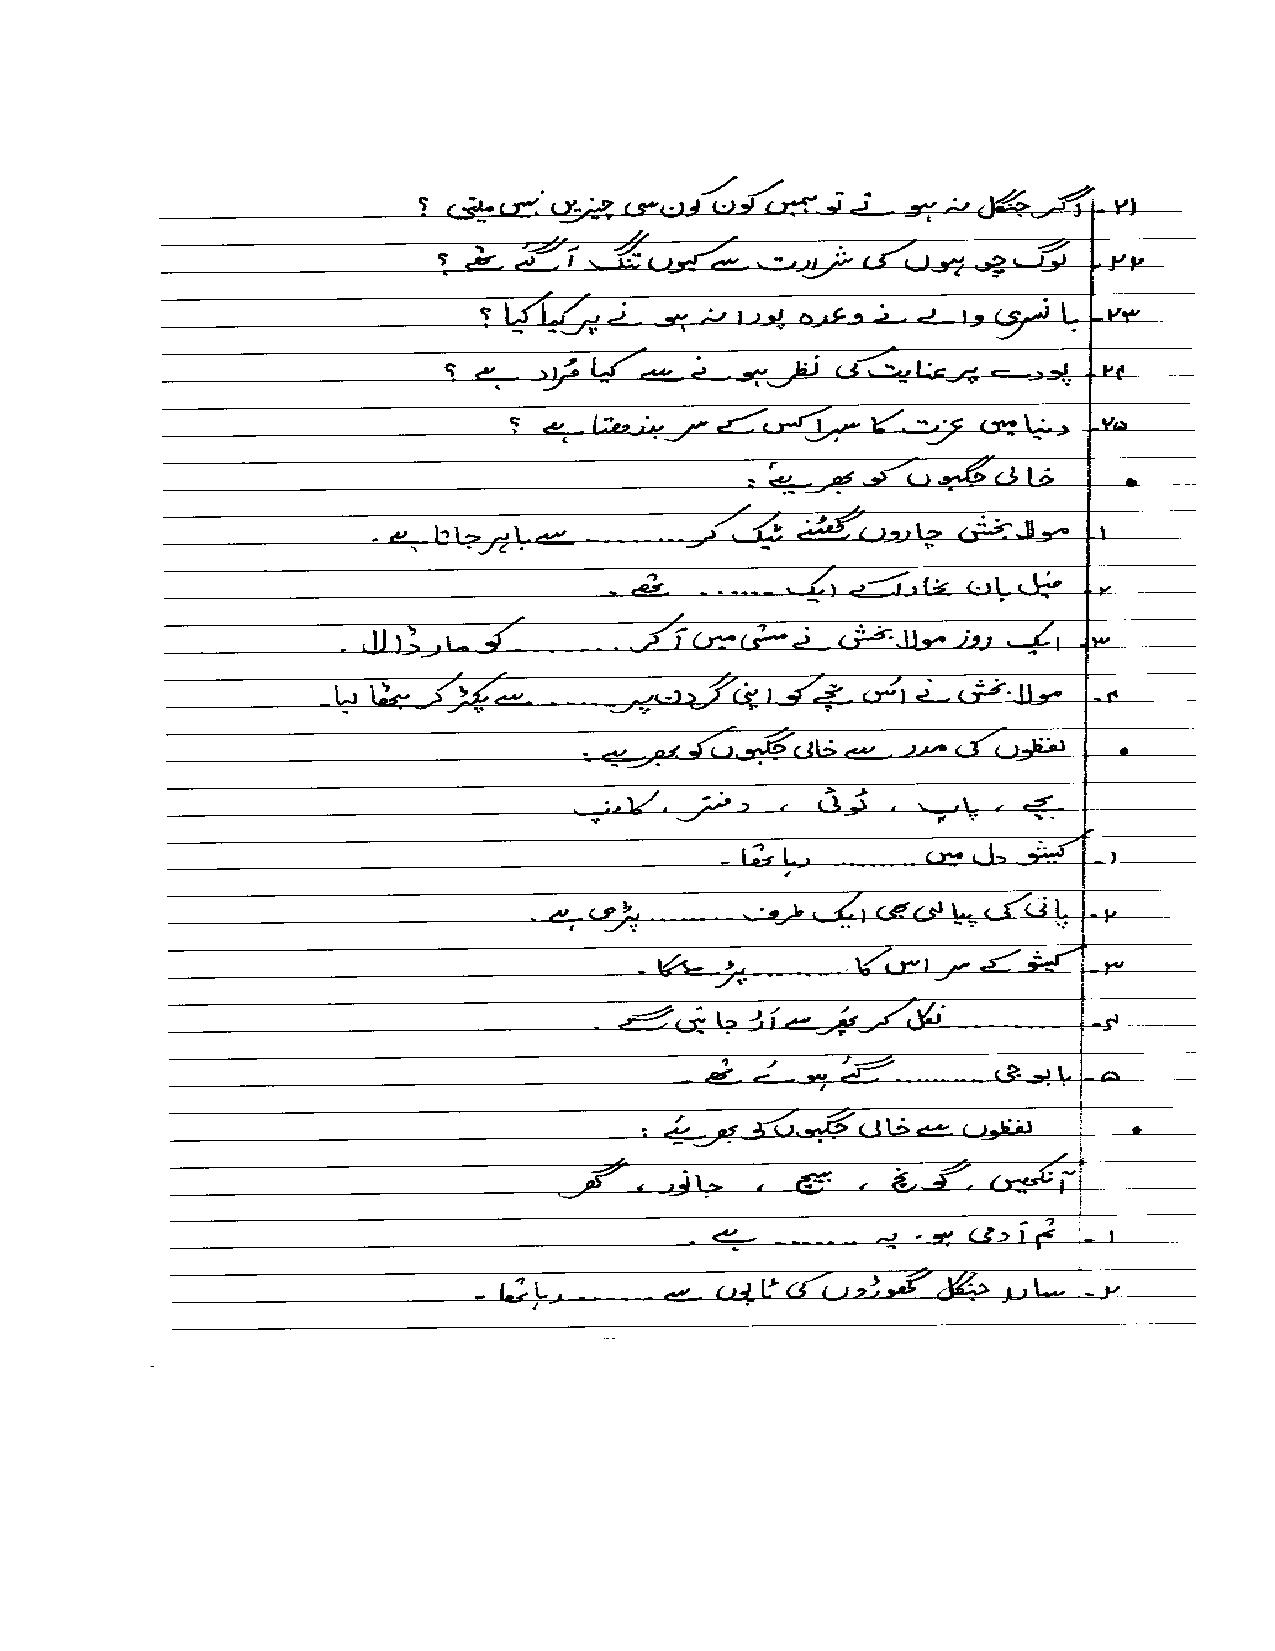 ۲۱- اگر جنگل نہ ہوتے تو ہمیں کون کون سی چیزیں نہیں ملتی ؟
۲۲- لوگ چوہوں کی شرارت سے کیوں تنگ آ گئے تھے ؟
۲۳- بانسری والے نے وعدہ پورا نہ ہونے پر کیا کیا ؟
۲۴- پودے پر عنایت کی نظر ہونے سے کیا مُراد ہے ؟
۲۵- دنیا میں عزت کا سہرا کس کے سر بندھتا ہے ؟
• خالی جگہوں کو بھریئے :
۱- مولا بخش چاروں گھٹنے ٹیک کر .......... سے باہر جاتا ہے ۔
۲- فیل بان بخادر کے ایک ....... تھے ۔
۳- ایک روز مولا بخش نے مستی میں آ کر .......... کو مار ڈالا ۔
۴- مولا بخش نے اُس بچے کو اپنی گردن پر ........ سے پکڑ کر بیٹھا لیا ۔
• لفظوں کی مدد سے خالی جگہوں کو بھریے :
بچے ، پاپ ، ٹوٹی ، دفتر ، کانپ
۱- کیشو دل میں ......... رہا تھا ۔
۲- پانی کی پیالی بھی ایک طرف ......... پڑی ہے ۔
۳- کیشو کے سر اس کا ......... پڑے گا ۔
۴- ............ نکل کر پھر سے اُڑ جائیں گے ۔
۵- بابو جی .......... گئے ہوئے تھے ۔
• لفظوں سے خالی جگہوں کو بھریئے :
آنکھیں ، گونج ، بیچ ، جانور ، گھر
۱- تم آدمی ہو ۔ یہ ........ ہے ۔
۲- سارا جنگل گھوڑوں کی ٹاپوں سے ......... رہا تھا ۔